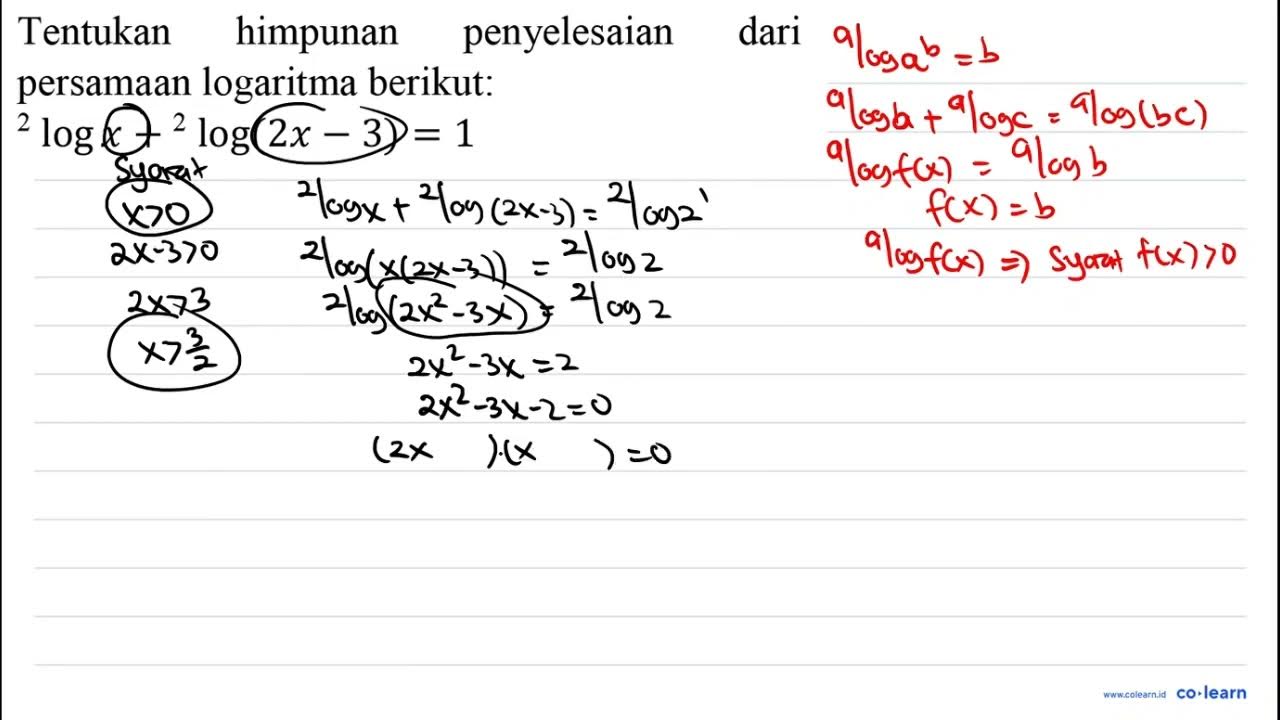 Tentukan himpunan penyelesaian dari
persamaan logaritma berikut:
² log x + ² log(2x − 3) = 1
Syarat
x>0
2x-3>0
2x>3
x>3/2
²log x + ²log (2x-3) = ²log 2¹
²log(x(2x-3)) = ²log 2
²log(2x²-3x) = ²log 2
2x²-3x = 2
2x²-3x-2=0
(2x ).(x ) =0
ᵃlog aᵇ = b
ᵃlog b + ᵃlog c = ᵃlog(bc)
ᵃlog f(x) = ᵃlog b
f(x) = b
ᵃlog f(x) => Syarat f(x)>0
www.colearn.id co·learn